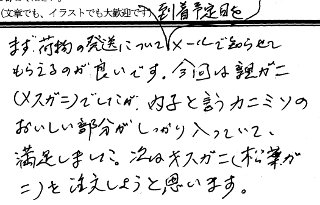 (文章でも、イラストでも大歓迎です)
到着予定日を
まず荷物の発送についてメールで知らせて
もらえるのが良いです。今回は親ガニ
(メスガニ)でしたが、内子と言うカニミソの
おいしい部分がしっかり入っていて、
満足しました。次はオスガニ(松葉ガ
ニ)を注文しようと思います。